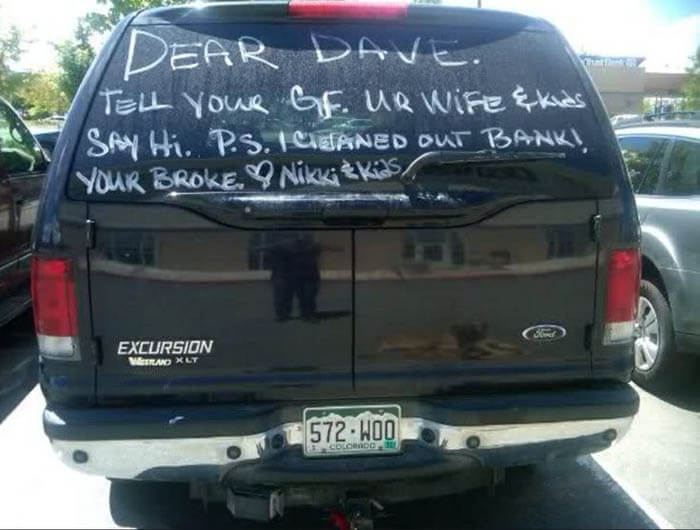 DEAR DAVE.
TELL YOUR GF. UR WIFE & KIDS
SAY Hi. P.S. I CLEANED OUT BANK!
YOUR BROKE. ♡ Nikki & Kids
EXCURSION
XLT
Ford
572·WOO
COLORADO